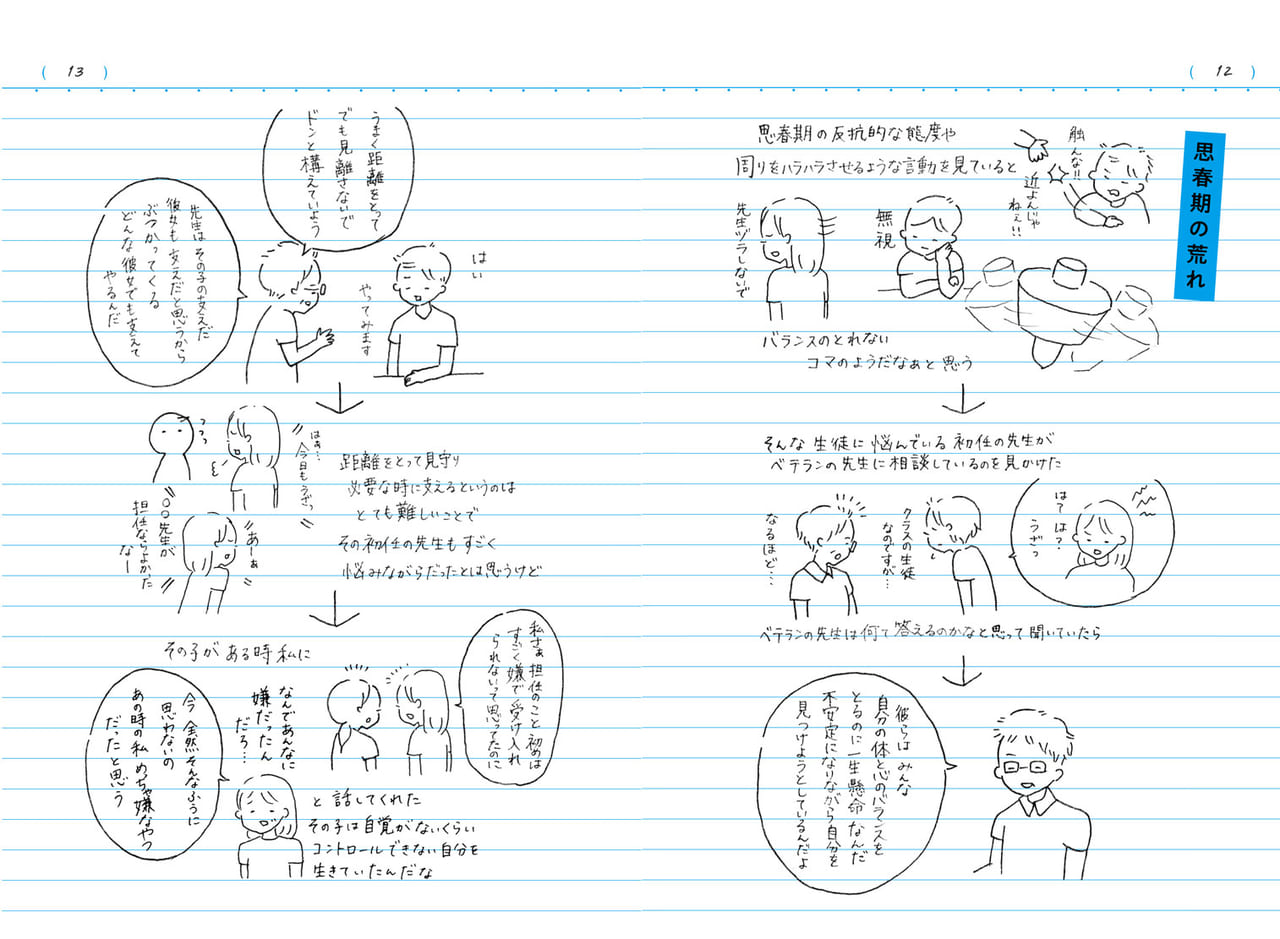 ( 12 )
思春期の荒れ
思春期の反抗的な態度や
周りをハラハラさせるような言動を見ていると
触んな!!
近よんじゃ
ねぇ!!
無視
先生ヅラしないで
バランスのとれない
コマのようだなぁと思う
そんな生徒に悩んでいる初任の先生が
ベテランの先生に相談しているのを見かけた
はて は?
うざっ
クラスの生徒
なのですが…
なるほど…
ベテランの先生は何て答えるのかなと思って聞いていたら
彼らはみんな
自分の体と心のバランスを
とるのに一生懸命なんだ
不安定になりながら自分を
見つけようとしているんだよ
( 13 )
うまく距離をとって
でも見離さないで
ドンと構えていよう
はい
やってみます
先生はその子の支えだ
彼女も支えだと思うから
ぶつかってくる
どんな彼女でも支えて
やるんだ
はぁ…
今日もうざっ
っっっ
あーぁ
〇〇先生が
担任ならよかった
なー
距離をとって見守り
必要な時に支えるというのは
とても難しいことで
その初任の先生もすごく
悩みながらだったとは思うけど
その子がある時私に
私さぁ担任のこと初めは
すごく嫌で受け入れ
られないって思ってたのに
なんであんなに
嫌だったん
だろ…
今全然そんなふうに
思わないの
あの時の私めちゃ嫌なやつ
だったと思う
と話してくれた
その子は自覚がないくらい
コントロールできない自分を
生きていたんだな